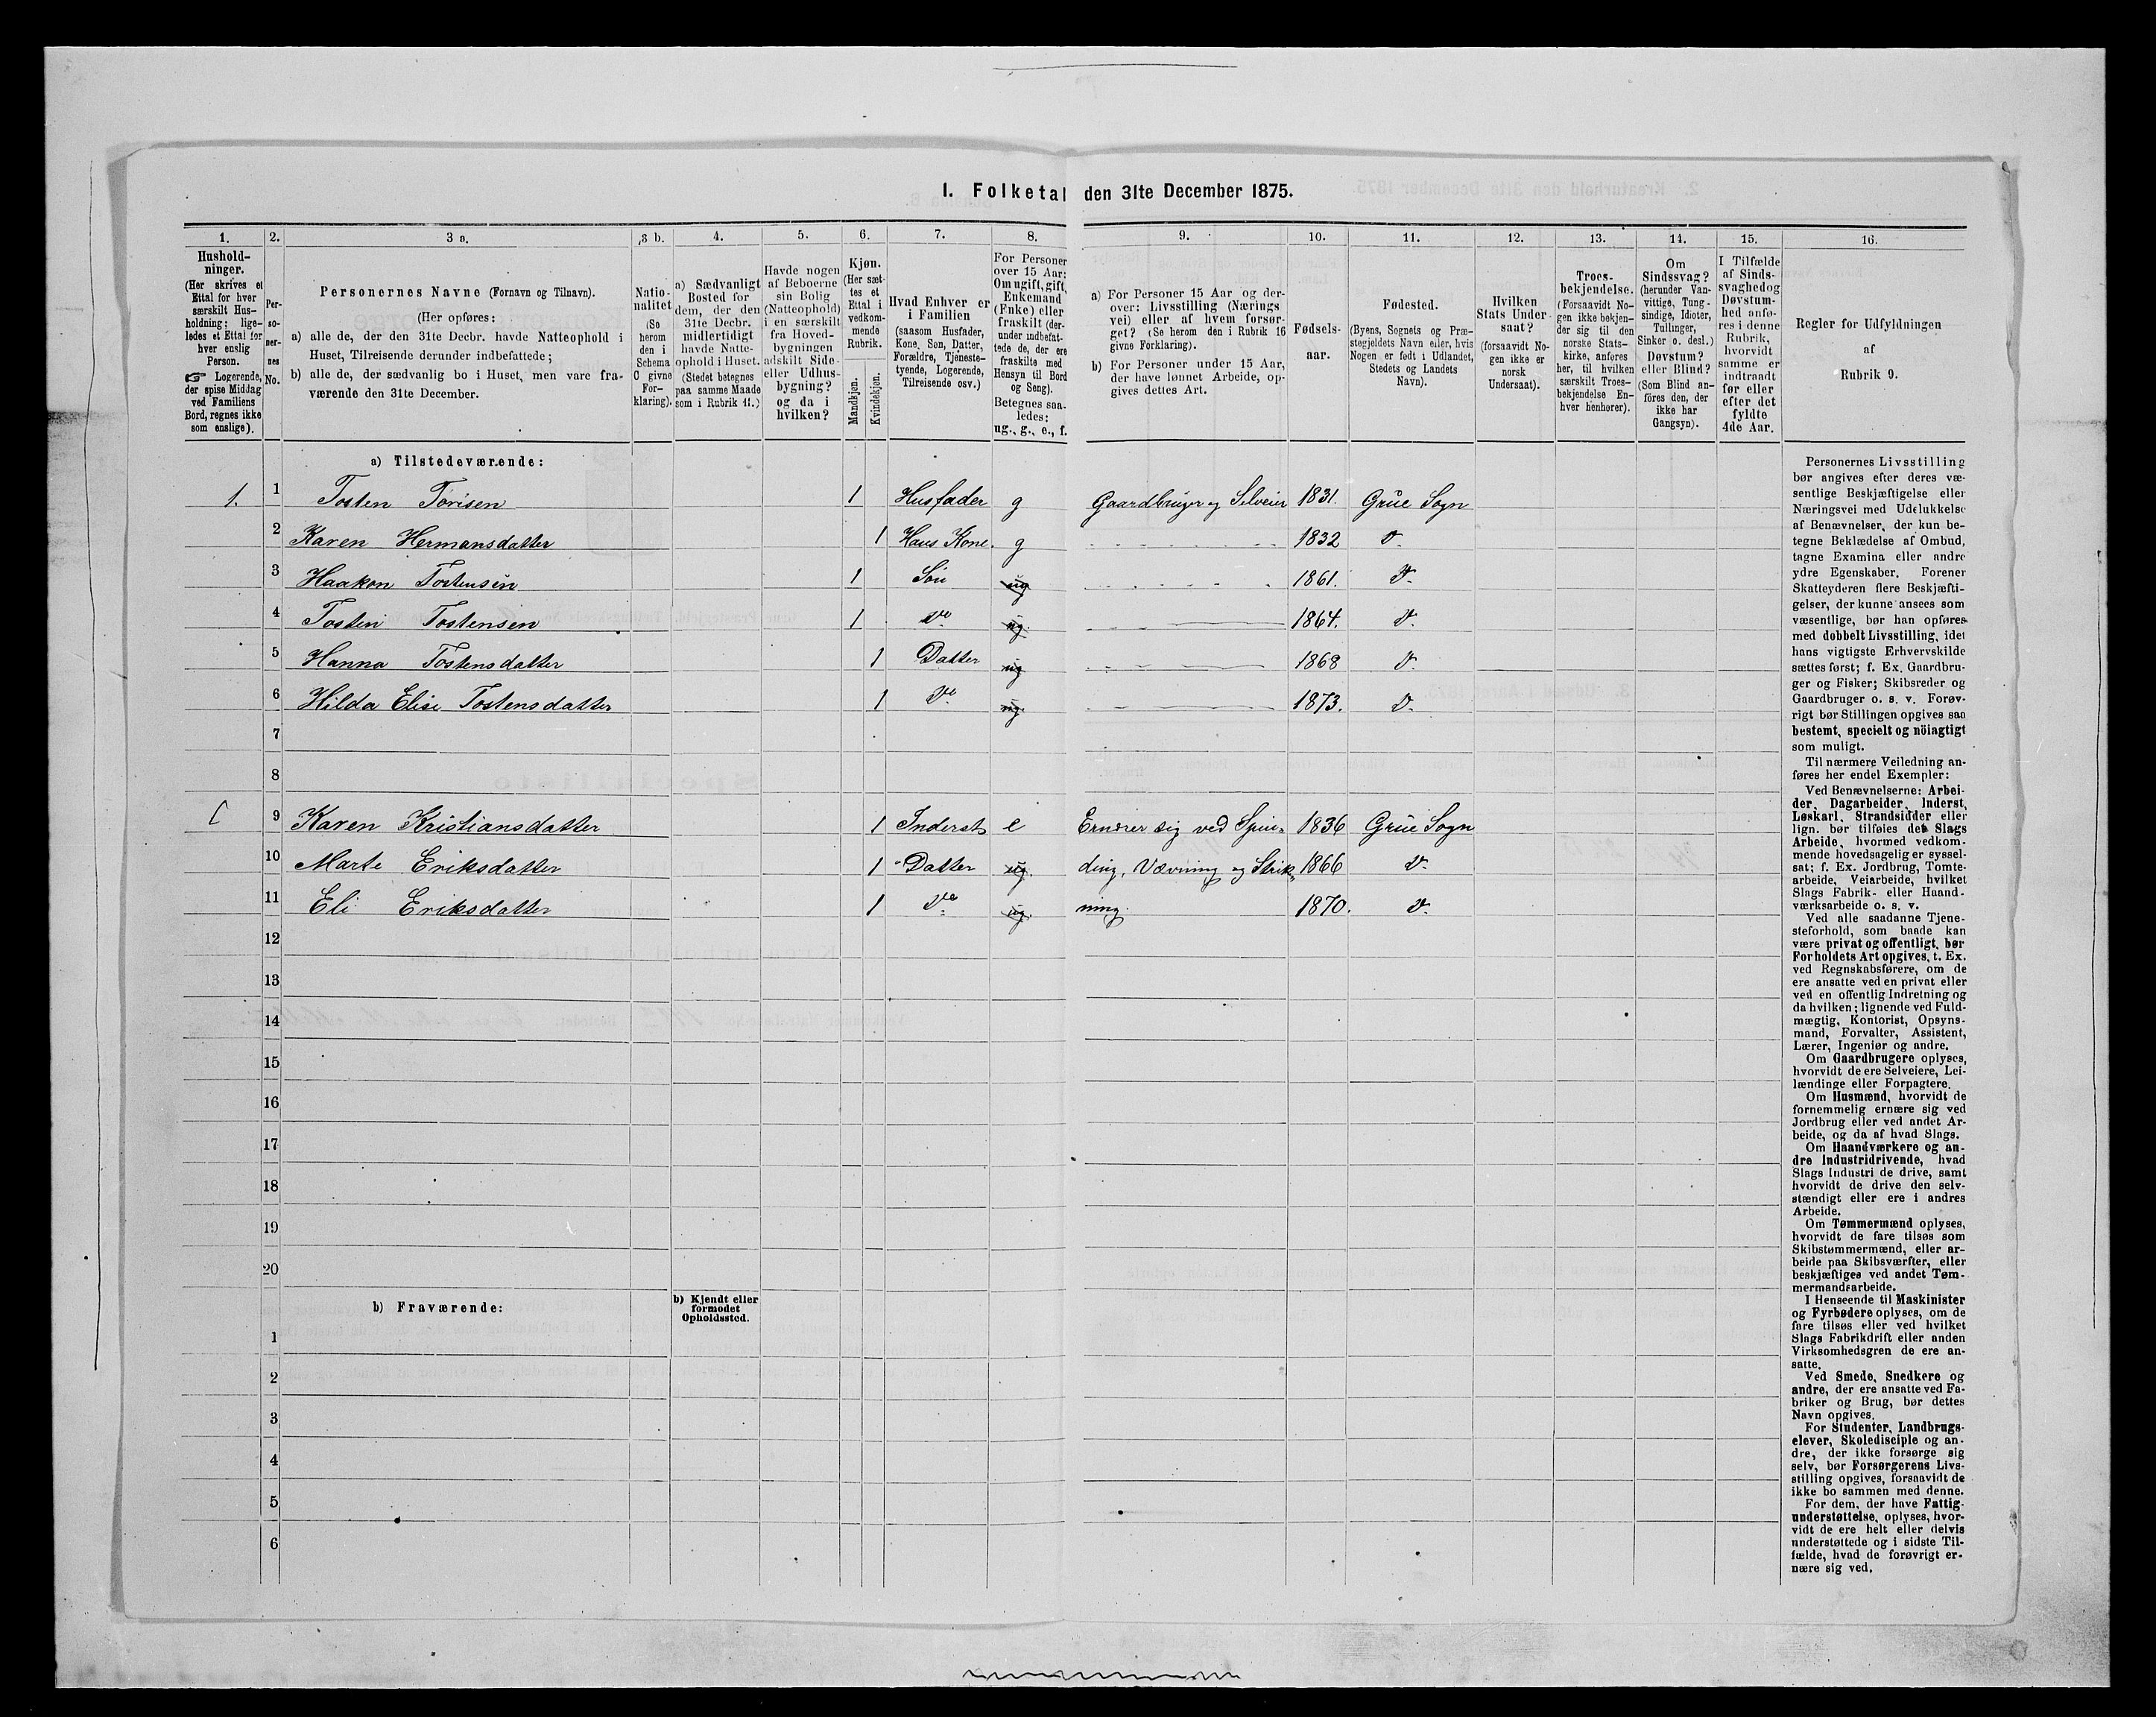 1. Folketal den 31te December 1875.
1. 2. 3 a. 3 b. 4. 5. 6. 7. 8. 9. 10. 11. 12. 13. 14. 15. 16.
Hushold-
ninger.
(Her skrives et
Ettal for hver
særskilt Hus-
holdning; lige-
ledes et Ettal for
hver enslig
Person.
☞ Logerende,
der spise Middag
ved Familiens
Bord, regnes ikke
som enslige).
Per-
so-
ner-
nes
No.
Personernes Navne (Fornavn og Tilnavn).
(Her opføres:
a) alle de, der den 31te Decbr. havde Natteophold i
Huset, Tilreisende derunder indbefattede;
b) alle de, der sædvanlig bo i Huset, men vare fra-
værende den 31te December.
Natio-
nalitet
(Se
herom
den i
Schema
C givne
For-
klaring).
a) Sædvanligt
Bosted for
dem, der den
31te Decbr.
midlertidigt
havde Natte-
ophold i Huset.
(Stedet betegnes
paa samme Maade
som i Rubrik 11.)
Havde nogen
af Beboerne
sin Bolig
(Natteophold)
i en særskilt
fra Hoved-
bygningen
adskilt Side-
eller Udhus-
bygning?
og da i
hvilken?
Kjøn.
(Her sæt-
tes et
Ettal i
vedkom-
mende
Rubrik.
Mandkjøn.
Kvindekjøn.
Hvad Enhver er
i Familien
(saasom Husfader,
Kone, Søn, Datter,
Forældre, Tjeneste-
tyende, Logerende,
Tilreisende osv.)
For Personer
over 15 Aar:
Om ugift, gift,
Enkemand
(Enke) eller
fraskilt (der-
under indbefat-
tede de, der ere
fraskilte med
Hensyn til Bord
og Seng).
Betegnes saa-
ledes:
ug., g., e., f.
a) For Personer 15 Aar og der-
over: Livsstilling (Nærings
vei) eller af hvem forsør-
get? (Se herom den i Rubrik 16
givne Forklaring).
b) For Personer under 15 Aar,
der have lønnet Arbeide, op-
gives dettes Art.
Fødsels-
aar.
Fødested.
(Byens, Sognets og Præ-
stegjeldets Navn eller, hvis
Nogen er født i Udlandet,
Stedets og Landets
Navn).
Hvilken
Stats Under-
saat?
(forsaavidt No-
gen ikke er
norsk
Undersaat).
Troes-
bekjendelse.
(Forsaavidt No-
gen ikke bekjen-
der sig til den
norske Stats-
kirke, anføres
her, til hvilken
særskilt Troes-
bekjendelse En-
hver henhører).
Om
Sindssvag?
(herunder Van-
vittige, Tung-
sindige, Idioter,
Tullinger,
Sinker o. desl.)
Døvstum?
eller Blind?
(Som Blind an-
føres den, der
ikke har
Gangsyn).
I Tilfælde
af Sinds-
svaghedog
Døvstum-
hed anfø-
res i denne
Rubrik,
hvorvidt
samme er
indtraadt
før eller
efter det
fyldte
4de Aar.
Regler for Udfyldningen
af
Rubrik 9.
a) Tilstedeværende:
1. 1 Tosten Torisen 1 Husfader g Gaardbruger og Selveier 1831. Grue Sogn
2 Karen Hermansdatter 1 Hans Kone. g 1832 D.
3 Haakon Tostensen 1 Søn ug 1861. D.
4 Tosten Tostensen 1 Do ug. 1864. D.
5 Hanna Tostensdatter 1 Datter ug 1868 D.
6 Hilda Elise Tostensdatter 1 Do ug. 1873. D.
7
8
9 Karen Kristiansdatter 1 Inderst e Ernærer sig ved Spin- 1836 Grue Sogn
10 Marte Eriksdatter 1 Datter ug. ding, Vævning og Strik- 1866 D.
11 Eli Eriksdatter 1 Do ug. ning. 1870. D.
12
13
14
15
16
17
18
19
20
b) Fraværende:
b) Kjendt eller
formodet
Opholdssted.
1
2
3
4
5
6
Personernes Livsstilling
bør angives efter deres væ-
sentlige Beskjæftigelse eller
Næringsvei med Udelukkelse
af Benævnelser, der kun be-
tegne Beklædelse af Ombud,
tagne Examina eller andre
ydre Egenskaber. Forener
Skatteyderen flere Beskjæfti-
gelser, der kunne ansees som
væsentlige, bør han opføres
med dobbelt Livsstilling, idet
hans vigtigste Erhvervskilde
sættes først; f. Ex. Gaardbru-
ger og Fisker; Skibsreder og
Gaardbruger o. s. v. Forøv-
rigt bør Stillingen opgives saa
bestemt, specielt og nöiagtigt
som muligt.
Til nærmere Veiledning an-
føres her endel Exempler:
Ved Benævnelserne: Arbei-
der, Dagarbeider, Inderst,
Løskarl, Strandsidder eller
lign. bør tilføies det Slags
Arbeide, hvormed vedkom-
mende hovedsagelig er syssel-
sat; f. Ex. Jordbrug, Tomte-
arbeide, Veiarbeide, hvilket
Slags Fabrik- eller Haand-
værksarbeide o. s. v.
Ved alle saadanne Tjene-
steforhold, som baade kan
være privat og offentligt, bør
Forholdets Art opgives, t. Ex.
ved Regnskabsførere, om de
ere ansatte ved en privat eller
ved en offentlig Indretning og
da hvilken; lignende ved Fuld-
mægtig, Kontorist, Opsyns-
mand, Forvalter, Assistent,
Lærer, Ingeniør og andre.
Om Gaardbrugere oplyses,
hvorvidt de ere Selveiere, Lei-
lændinge eller Forpagtere.
Om Husmænd, hvorvidt de
fornemmelig ernære sig ved
Jordbrug eller ved andet Ar-
beide, og da af hvad Slags.
Om Haandværkere og an-
dre Industridrivende, hvad
Slags Industri de drive, samt
hvorvidt de drive den selv-
stændigt eller ere i andres
Arbeide.
Om Tømmermænd oplyses,
hvorvidt de fare tilsøs som
Skibstømmermænd, eller ar-
beide paa Skibsværfter, eller
beskjæftiges ved andet Tøm-
mermandsarbeide.
I Henseende til Maskinister
og Fyrbødere oplyses, om de
fare tilsøs eller ved hvilket
Slags Fabrikdrift eller anden
Virksomhedsgren de ere an-
satte.
Ved Smede, Snedkere og
andre, der ere ansatte ved Fa-
briker og Brug, bør dettes
Navn opgives.
For Studenter, Landbrugs-
elever, Skoledisciple og an-
dre, der ikke forsørge sig
selv, bør Forsørgerens Livs-
stilling opgives, forsaavidt de
ikke bo sammen med denne.
For dem, der have Fattig-
understøttelse, oplyses, hvor-
vidt de ere helt eller delvis
understøttede og i sidste Til-
fælde, hvad de forøvrigt er-
nære sig ved.